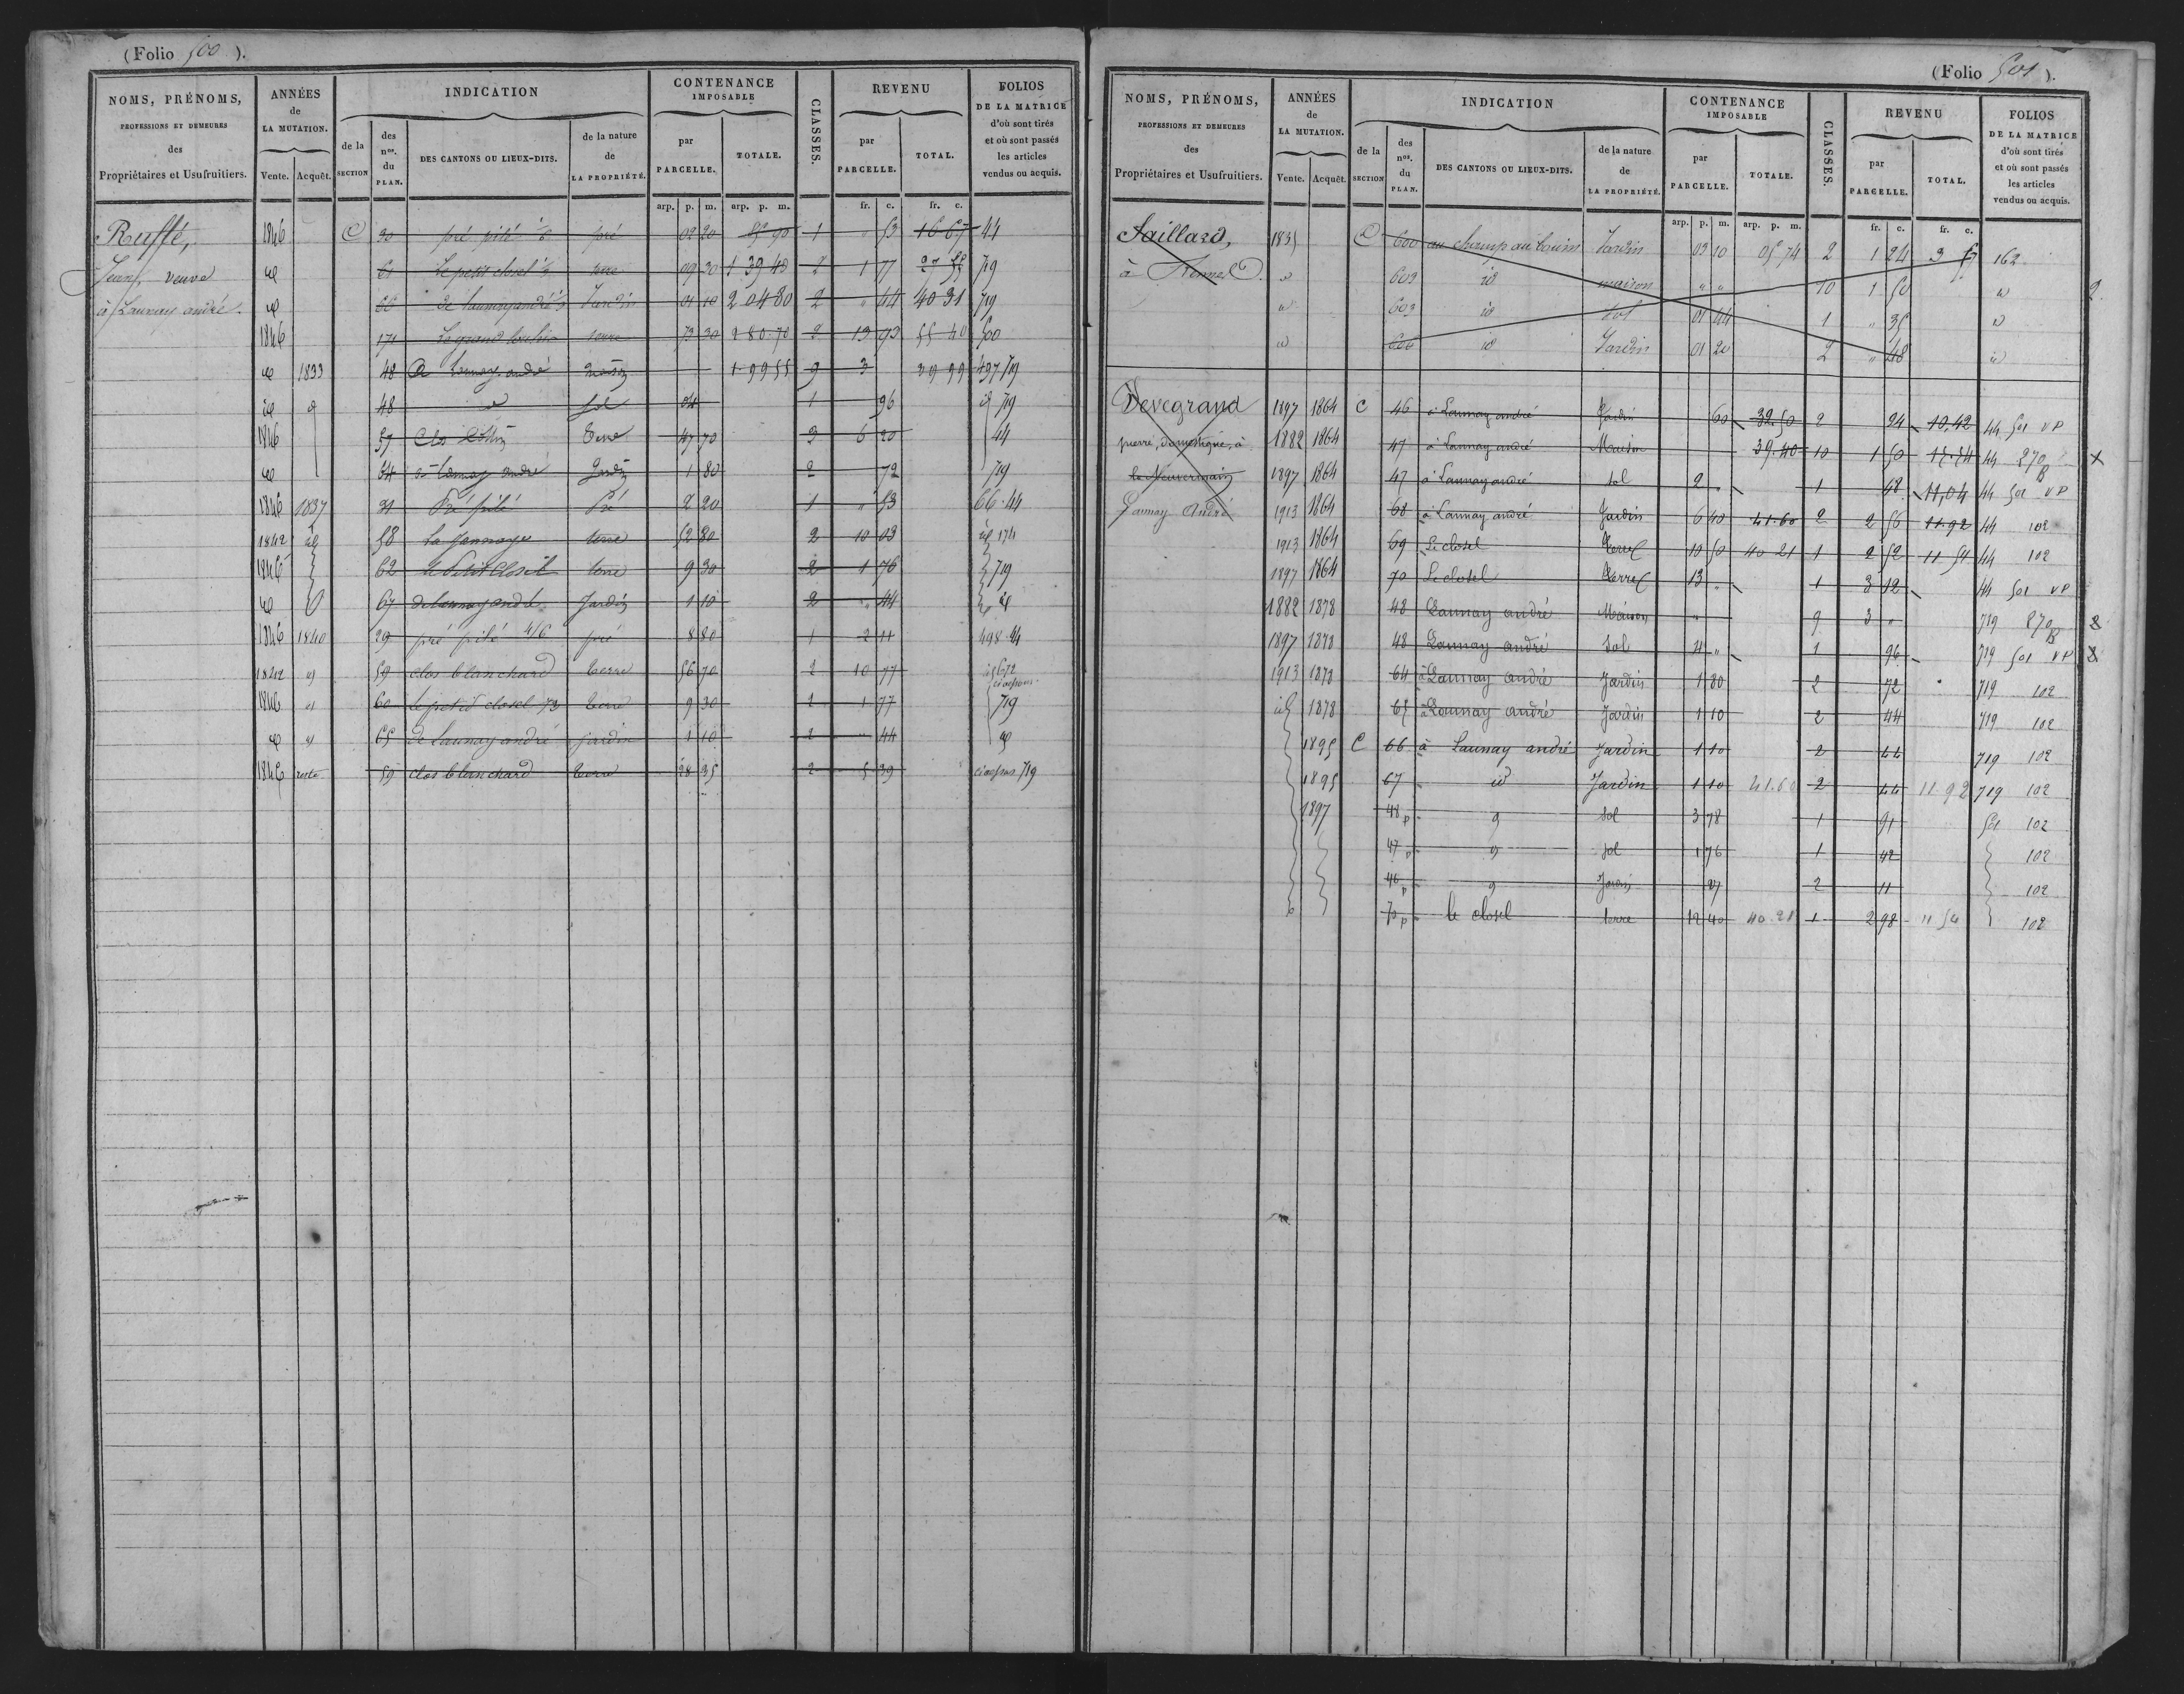 (Folio 500).
NOMS, PRÉNOMS, PROFESSIONS ET DEMEURES des Propriétaires et Usufruitiers.
ANNÉES de LA MUTATION. Vente. Acquêt.
INDICATION de la SECTION des nos. du PLAN. DES CANTONS OU LIEUX-DITS. de la nature de LA PROPRIÉTÉ.
CONTENANCE IMPOSABLE par PARCELLE. TOTALE.
CLASSES.
REVENU par PARCELLE. TOTAL.
FOLIOS DE LA MATRICE d'où sont tirés et où sont passés les articles vendus ou acquis.
arp. p. m. arp. p. m. fr. c. fr. c.
Ruffé, 1846 C 30 pré pilé pré 02 20 1 " 53 16 67 44
veuve id 61 le petit closel terre 09 30 1 39 40 2 1 77 719
à Launay andré. id 66 de launay andré Jardin 01 10 2 04 80 2 " 44 40 31 719
1846 171 terre 73 30 2 80 70 2 13 93 55 40 500
id 1833 48 à Launay andré maison 1 99 55 9 3 39 99 497 719
id d 48 d sol 04 1 96 id 719
1846 57 Clos terre 47 70 3 6 20 44
id 64 à Launay andré Jardin 1 80 2 72 719
1846 1837 31 Pré pilé Pré 2 20 1 " 53 66 44
1842 id 58 terre 52 80 2 10 03 id 174
1846 62 le Petit Closel terre 9 30 2 1 76 719
id 67 de launay andré Jardin 1 10 2 " 44 id
1846 1840 29 pré pilé 4/6 pré 8 80 1 2 11 498 44
1842 id 59 clos blanchard terre 56 70 2 10 77
1846 id 60 le petit closel terre 9 30 2 1 77 719
id id 65 de Launay andré jardin 1 10 2 " 44 id
1846 reste 59 clos blanchard terre 28 35 2 5 39 719
(Folio 501).
NOMS, PRÉNOMS, PROFESSIONS ET DEMEURES des Propriétaires et Usufruitiers.
ANNÉES de LA MUTATION. Vente. Acquêt.
INDICATION de la SECTION des nos. du PLAN. DES CANTONS OU LIEUX-DITS. de la nature de LA PROPRIÉTÉ.
CONTENANCE IMPOSABLE par PARCELLE. TOTALE.
CLASSES.
REVENU par PARCELLE. TOTAL.
FOLIOS DE LA MATRICE d'où sont tirés et où sont passés les articles vendus ou acquis.
arp. p. m. arp. p. m. fr. c. fr. c.
Saillard, 1835 C 600 au champ au Jardin 03 10 05 74 2 1 24 3 162
à id 603 id maison " " 10 1 50 id 2
id 603 id sol 01 44 1 " 35 id
id 606 id Jardin 01 20 2 " 48 id
Devegrand 1897 1864 C 46 à Launay andré Jardin 60 39.50 2 24 10,42 44 501 VP
pierre, domestique, à 1882 1864 47 à Launay andré Maison 39.40 10 1 50 44 270 B X
1897 1864 47 à Launay andré sol 2 " 1 48 11,04 44 501 VP
Launay André 1913 1864 68 à Launay andré Jardin 6 40 41.60 2 2 56 11.92 44 102
1913 1864 69 Le closel terre 10 50 40 21 1 2 52 11 54 44 102
1897 1864 70 Le closel terre 13 " 1 3 12 44 501 VP
1882 1878 48 Launay andré Maison " 9 3 " 719 270 B
1897 1878 48 Launay andré Sol 4 " 1 96 719 501 VP
1913 1878 64 à Launay andré Jardin 1 80 2 72 719 102
id 1878 65 à Launay andré Jardin 1 10 2 44 719 102
1895 C 66 à Launay andré Jardin 1 10 2 44 719 102
1895 67 id Jardin 1 10 41.60 2 44 11.92 719 102
1897 48 p sol 3 78 1 91 501 102
47 p sol 1 76 1 42 102
46 p Jardin 27 2 11 102
70 p le closel terre 12 40 40.21 1 2 98 11 54 102